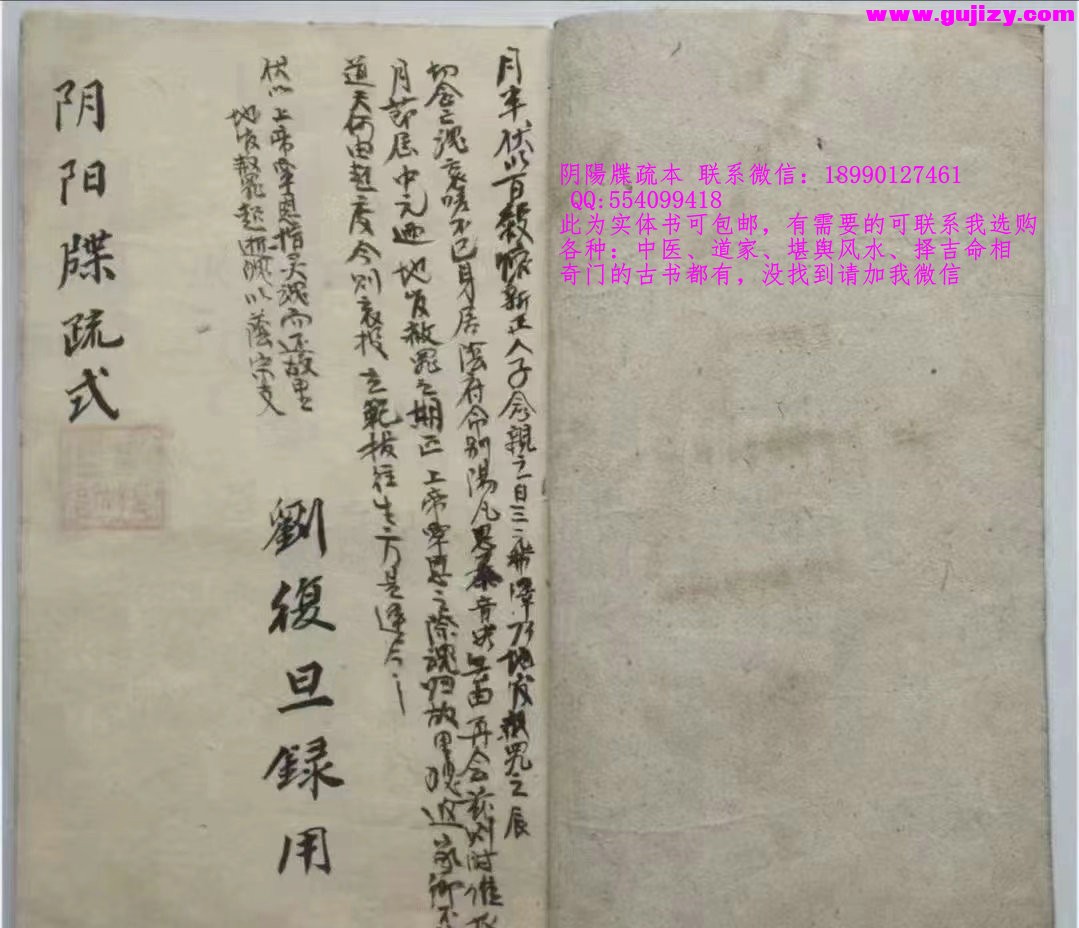 www.gujizy.com
阴陽牒疏本 联系微信：18990127461
QQ:554099418
此为实体书可包邮，有需要的可联系我选购
各种：中医、道家、堪舆风水、择吉命相
奇门的古书都有，没找到请加我微信
月半伏以百穀惟新正人子念親之日三元地官赦罪之辰
切念亡魂哀嗟不已身居陰府命别陽凡思音再会兹则时维
月节届中元迺地官赦罪之期正上帝覃恩之際魂归故里返家
道天何由超度今则衣投之範拔往生方是
伏以上帝覃恩指灵魂而还故里
地官赦罪超逝魄以蔭宗支
劉復旦録用
阴阳牒疏式